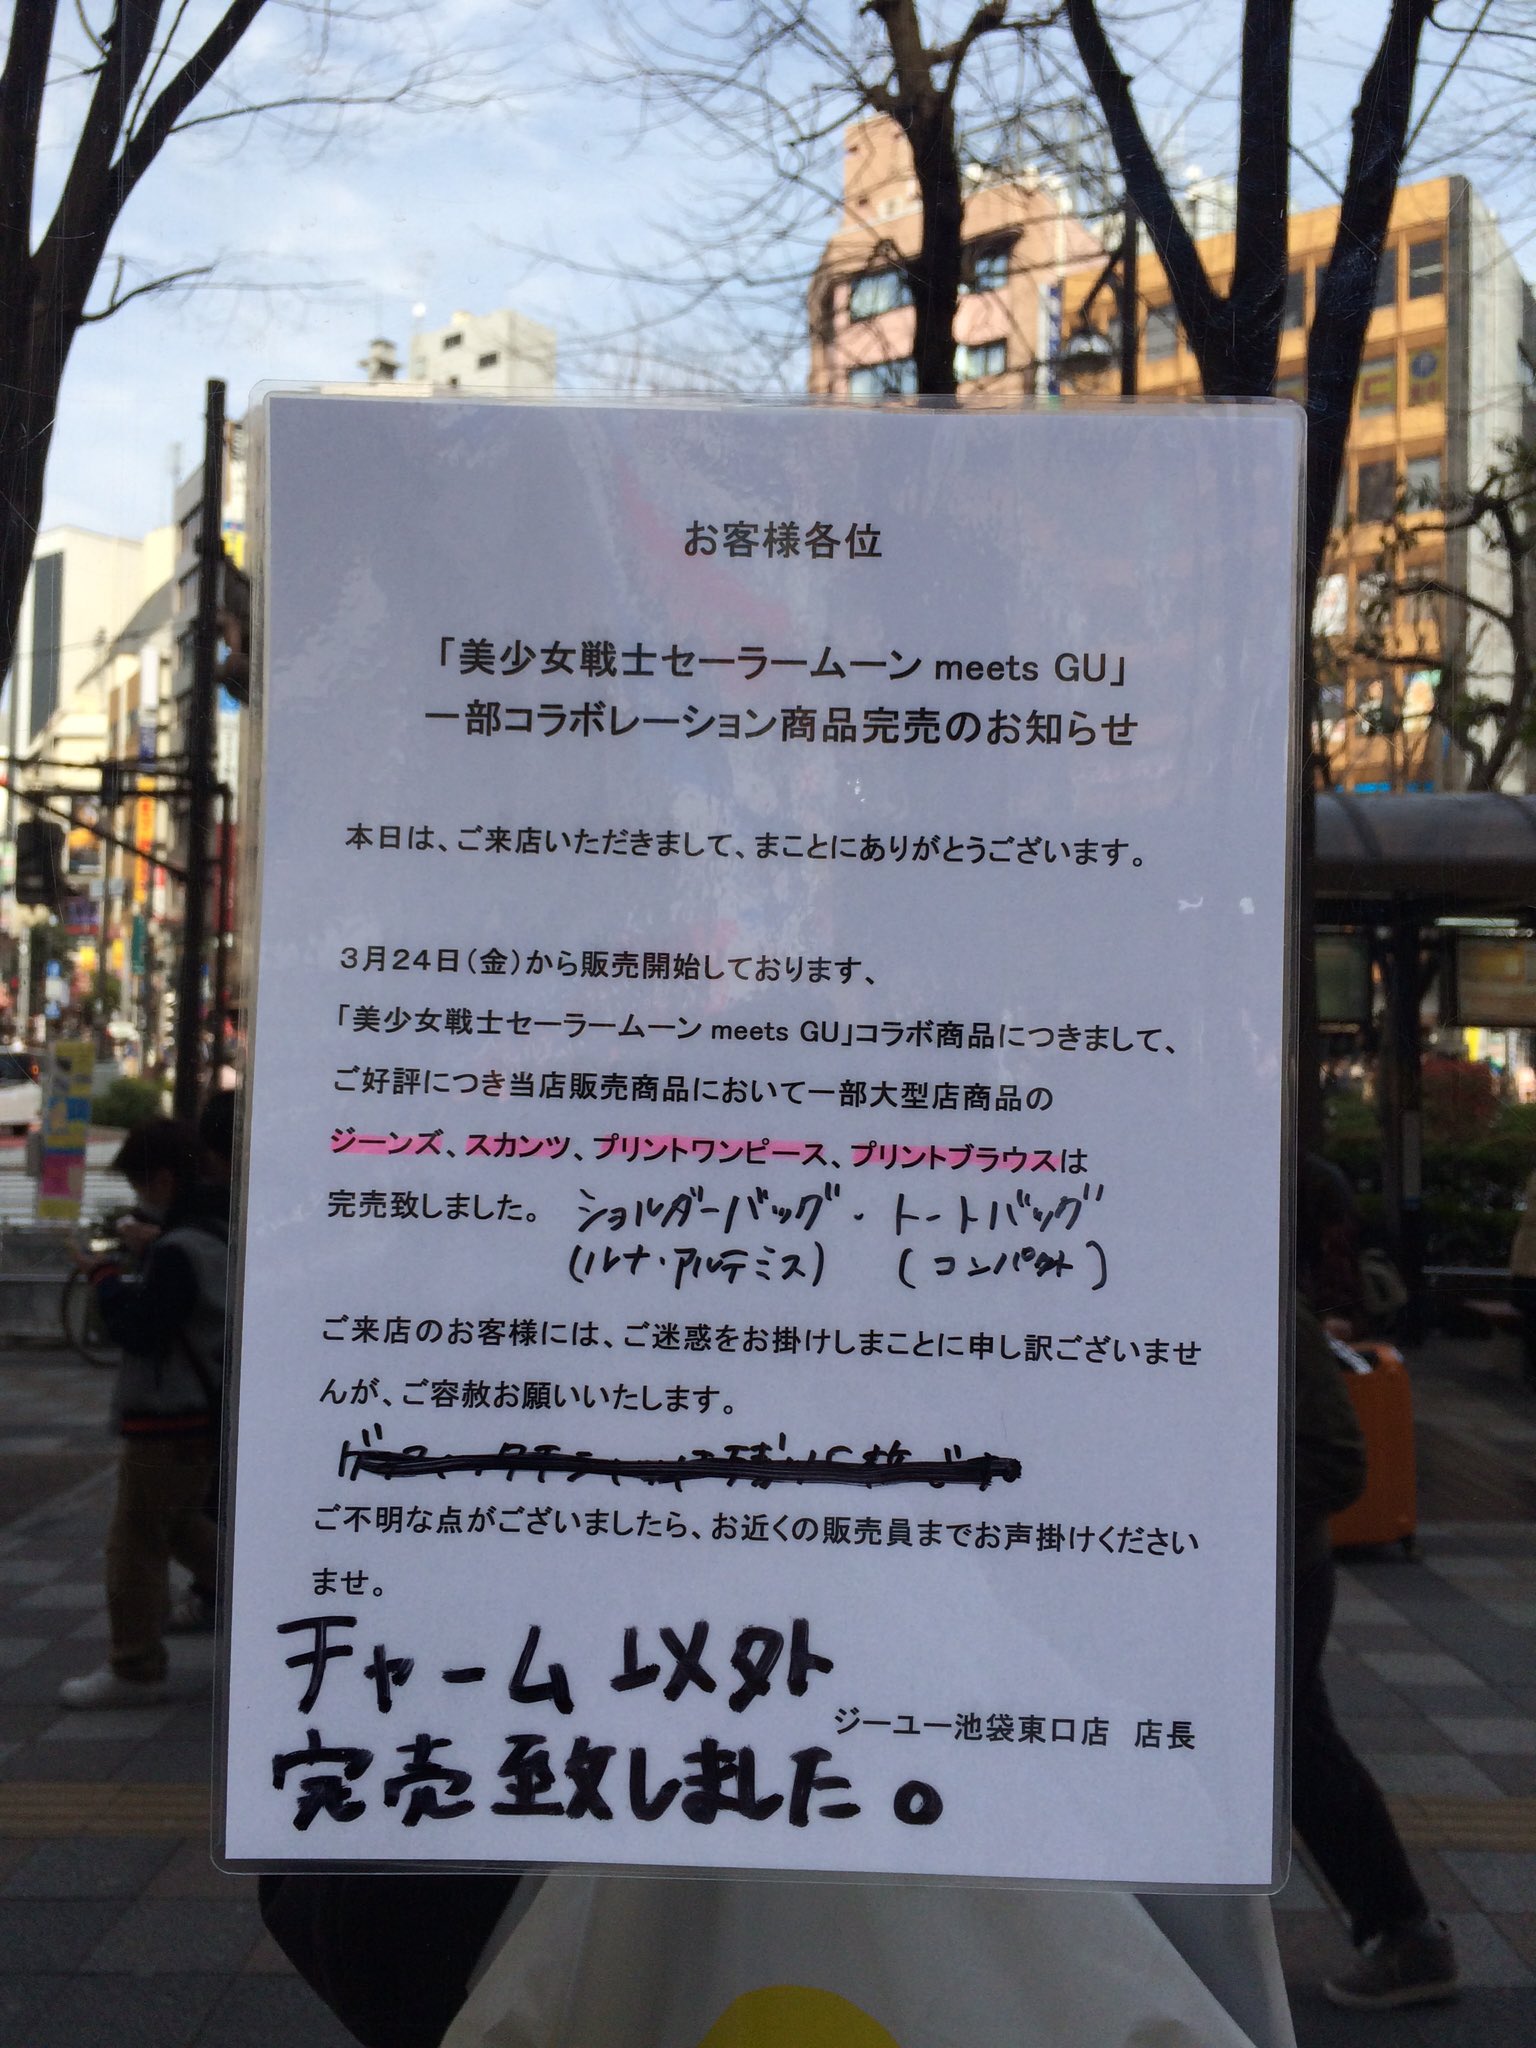 お客様各位
「美少女戦士セーラームーン meets GU」
一部コラボレーション商品完売のお知らせ
本日は、ご来店いただきまして、まことにありがとうございます。
３月２４日（金）から販売開始しております、
「美少女戦士セーラームーン meets GU」コラボ商品につきまして、
ご好評につき当店販売商品において一部大型店商品の
ジーンズ、スカンツ、プリントワンピース、プリントブラウスは
完売致しました。 ショルダーバッグ・トートバッグ
(ルナ・アルテミス) (コンパクト)
ご来店のお客様には、ご迷惑をお掛けしまことに申し訳ございませ
んが、ご容赦お願いいたします。
ご不明な点がございましたら、お近くの販売員までお声掛けください
ませ。
チャーム以外
ジーユー池袋東口店　店長
完売致しました。